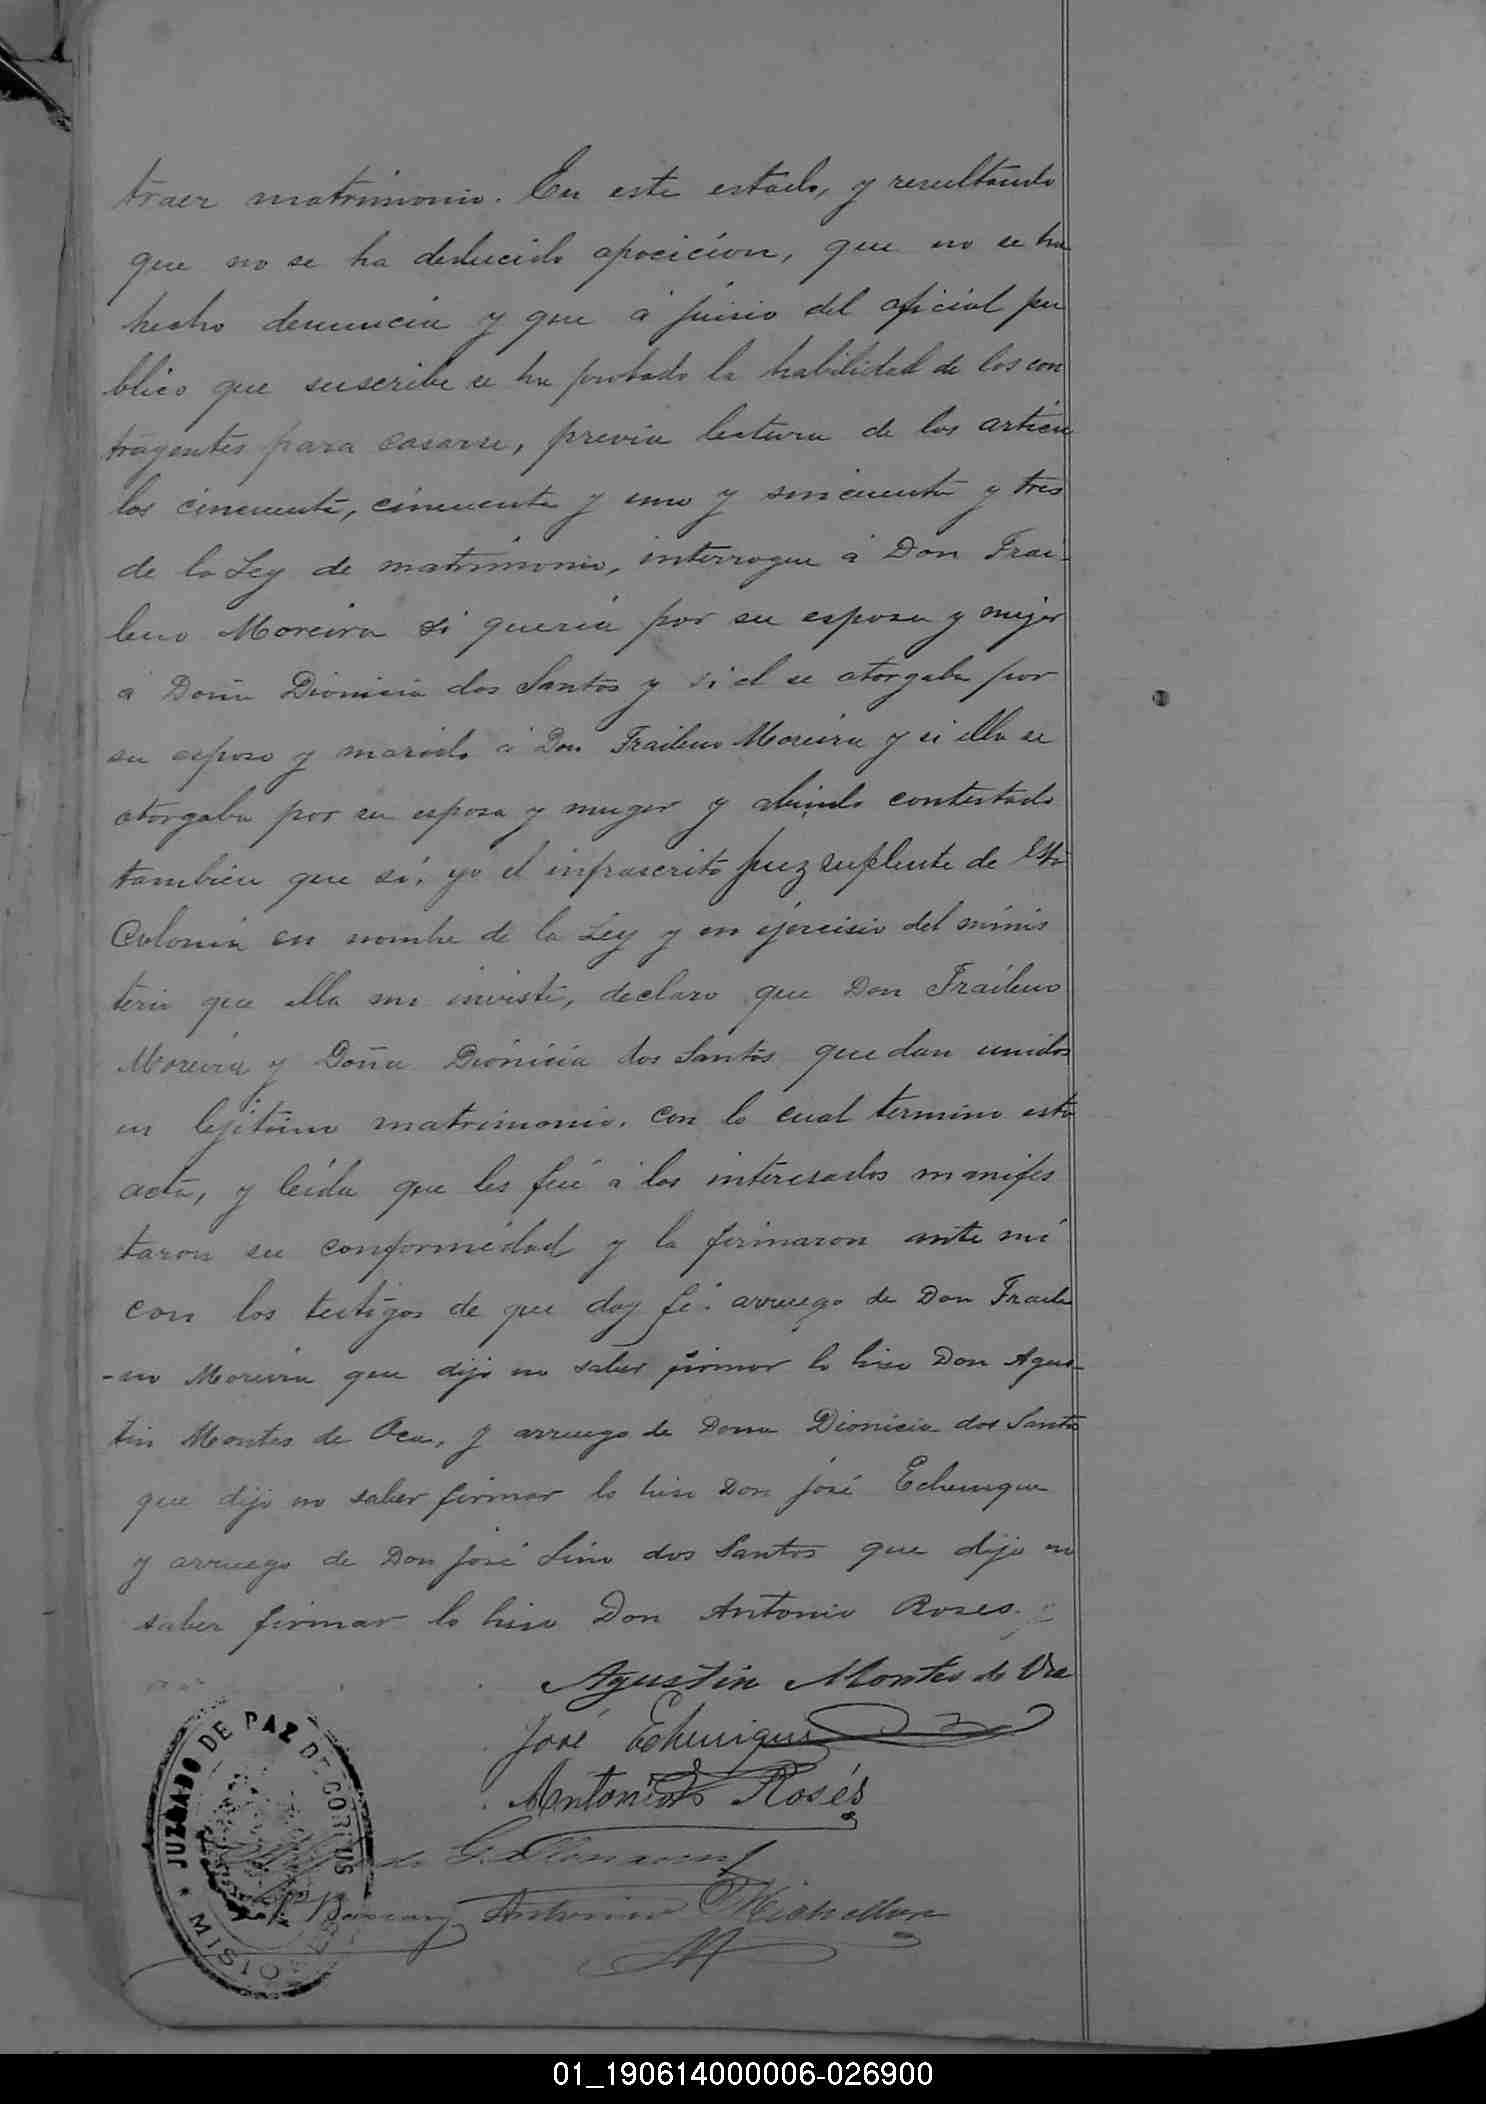 traer matrimonio. En este estado, y resultando
que no se ha deducido oposicion, que no se ha
hecho denuncia y que á juicio del oficial pu
blico que suscribe se ha probado la habilidad de los con
trayentes para casarse, previa lectura de los articu
los cincuenta, cincuenta y uno y sincuenta y tres
de la Ley de matrimonio, interrogue á Don Frai-
leno Moreira si queria por su esposa y mujer
á Doña Dionicia dos Santos y si el se otorgaba por
su esposo y marido á Don Fraileno Moreira y si ella se
otorgaba por su esposa y muger y abiendo contestado
tambien que sí, yo el infrascrito Juez suplente de Esta
Colonia en nombre de la Ley y en ejercisio del minis
terio que ella me inviste, declaro que Don Fraileno
Moreira y Doña Dionicia dos Santos quedan unidos
en lejitimo matrimonio. con lo cual termino esta
acta, y leida que les fué á los interesados manifes
taron su conformidad y la firmaron ante mi
con los testigos de que doy fé. arruego de Don Fraile
-no Moreira que dijo no saber firmar lo hiso Don Agus-
tin Montes de Oca, y arruego de Dona Dionicia dos Santos
que dijo no saber firmar lo hiso Don José Echenique
y arruego de Don José Lino dos Santos que dijo no
saber firmar lo hiso Don Antonio Roses.
Agustin Montes de Oca
José Echenique
Antonio Rosés
G.
Antonino
JUZGADO DE PAZ DE CORPUS
* MISIONES
01_190614000006-026900